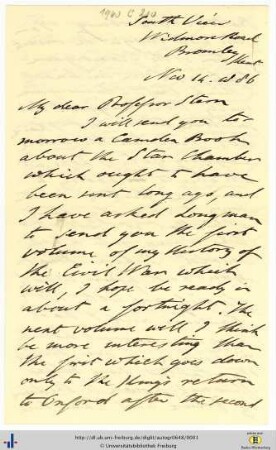 South View
Widmore Road
Bromley
Kent
Nov 14. 1886
My dear Professor Stern
I will send you to-
morrow a Camden Book
about the Star Chamber
which ought to have
been sent long ago, and
I have asked Longman
to send you the first
volume of my History of
the Civil War which
will, I hope be ready in
about a fortnight. The
next volume will I think
be more interesting than
the first which goes down
only to the King's return
to Oxford after the second
http://dl.ub.uni-freiburg.de/diglit/autogr0648/0001
© Universitätsbibliothek Freiburg